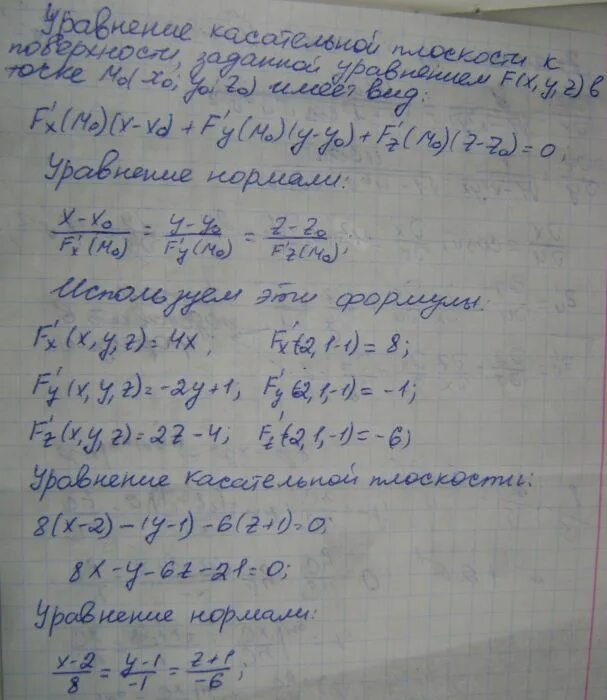 Уравнение касательной плоскости к
поверхности, заданной уравнением F(x,y,z) в
точке M₀(x₀; y₀, z₀) имеет вид:
F'x(M₀)(x-x₀) + F'y(M₀)(y-y₀) + F'z(M₀)(z-z₀) = 0.
Уравнение нормали:
(x-x₀)/F'x(M₀) = (y-y₀)/F'y(M₀) = (z-z₀)/F'z(M₀);
Используем эти формулы:
F'x(x,y,z) = 4x; F'x(2,1-1) = 8;
F'y(x,y,z) = -2y+1, F'y(2,1,-1) = -1;
F'z(x,y,z) = 2z-4; F'z(2,1,-1) = -6;
Уравнение касательной плоскости:
8(x-2) - (y-1) - 6(z+1) = 0;
8x-y-6z-21=0;
Уравнение нормали:
(x-2)/8 = (y-1)/-1 = (z+1)/-6;